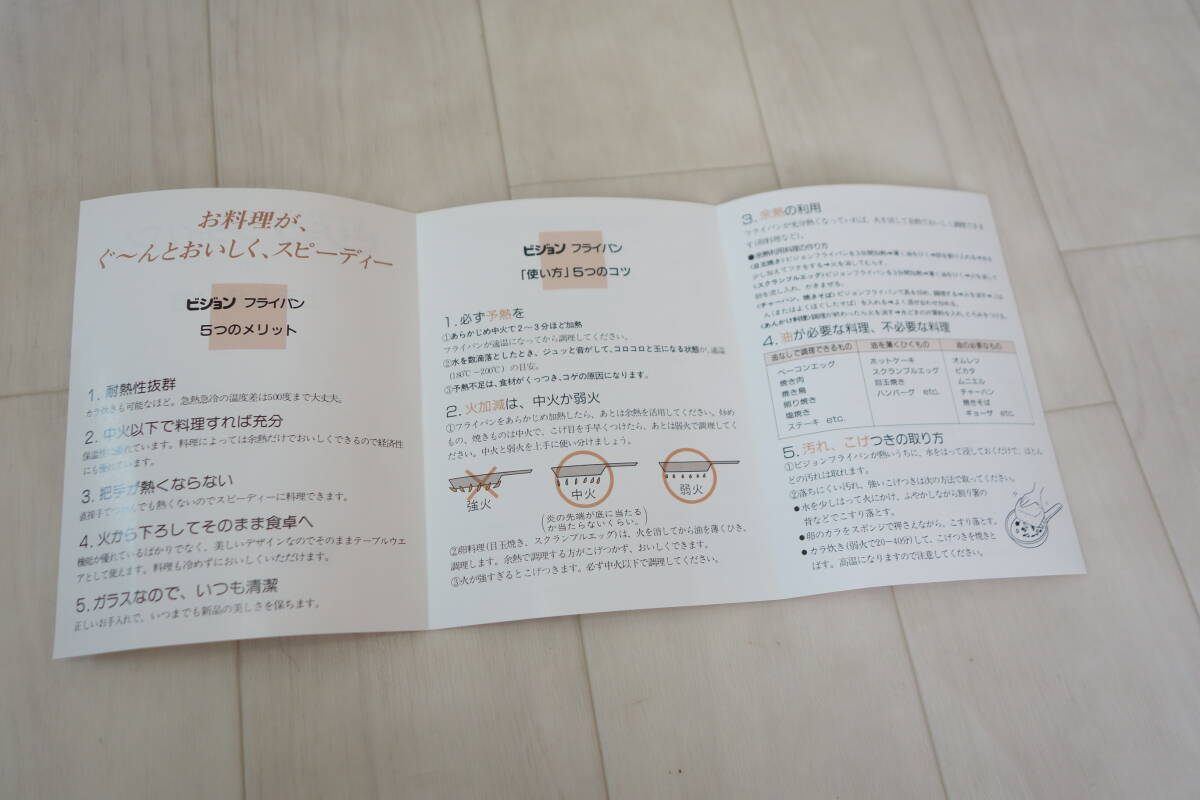 お料理が、
ぐ〜んとおいしく、スピーディー
ビジョン フライパン
5つのメリット
1. 耐熱性抜群
カラ炊きも可能なほど。急熱急冷の温度差は500度まで大丈夫。
2. 中火以下で料理すれば充分
保温性に優れています。料理によっては余熱だけでおいしくできるので経済性
にも優れています。
3. 把手が熱くならない
直接手でつかんでも熱くないのでスピーディーに料理できます。
4. 火から下ろしてそのまま食卓へ
機能が優れているばかりでなく、美しいデザインなのでそのままテーブルウエ
アとして使えます。料理も冷めずにおいしくいただけます。
5. ガラスなので、いつも清潔
正しいお手入れで、いつまでも新品の美しさを保ちます。
ビジョン フライパン
「使い方」5つのコツ
1. 必ず予熱を
①あらかじめ中火で2〜3分ほど加熱
フライパンが適温になってから調理してください。
②水を数滴落としたとき、ジュッと音がして、コロコロと玉になる状態が、適温
(180℃〜200℃) の目安。
③予熱不足は、食材がくっつき、コゲの原因になります。
2. 火加減は、中火か弱火
①フライパンをあらかじめ加熱したら、あとは余熱を活用してください。炒め
もの、焼きものは中火で、こげ目を手早くつけたら、あとは弱火で調理してく
ださい。中火と弱火を上手に使い分けましょう。
強火
中火
弱火
(炎の先端が底に当たる
か当たらないくらい。)
②卵料理(目玉焼き、スクランブルエッグ)は、火を消してから油を薄くひき、
調理します。余熱で調理する方がこげつかず、おいしくできます。
③火が強すぎるとこげつきます。必ず中火以下で調理してください。
3. 余熱の利用
フライパンが充分熱くなっていれば、火を消して余熱でおいしく調理できま
す(卵料理など)。
●余熱利用料理の作り方
(目玉焼き)ビジョンフライパンを3分間加熱➡薄く油をひく➡卵を割り入れる➡水を
少し加えてフタをする➡火を消してむらす。
(スクランブルエッグ)ビジョンフライパンを3分間加熱➡薄く油をひく➡火を消して
卵を流し入れ、かきまぜる。
(チャーハン、焼きそば)ビジョンフライパンで具を炒め、調理する➡火を消す➡ごは
ん(またはよくほぐしたそば)を入れる➡よく混ぜ合わせ炒める。
(あんかけ料理)調理が終わったら火を消す➡水どきの片栗粉を入れ、とろみをつける。
4. 油が必要な料理、不必要な料理
油なしで調理できるもの 油を薄くひくもの 油の必要なもの
ベーコンエッグ ホットケーキ オムレツ
焼き肉 スクランブルエッグ ピカタ
焼き鳥 目玉焼き ムニエル
照り焼き ハンバーグ etc. チャーハン
塩焼き 焼きそば
ステーキ etc. ギョーザ etc.
5. 汚れ、こげつきの取り方
①ビジョンフライパンが熱いうちに、水をはって浸しておくだけで、ほとん
どの汚れは取れます。
②落ちにくい汚れ、強いこげつきは次の方法で取ってください。
●水を少しはって火にかけ、ふやかしながら割り箸の
背などでこすり落とす。
●卵のカラをスポンジで押さえながら、こすり落とす。
●カラ炊き(弱火で20〜40分)して、こげつきを焼きと
ばす。高温になりますので注意してください。